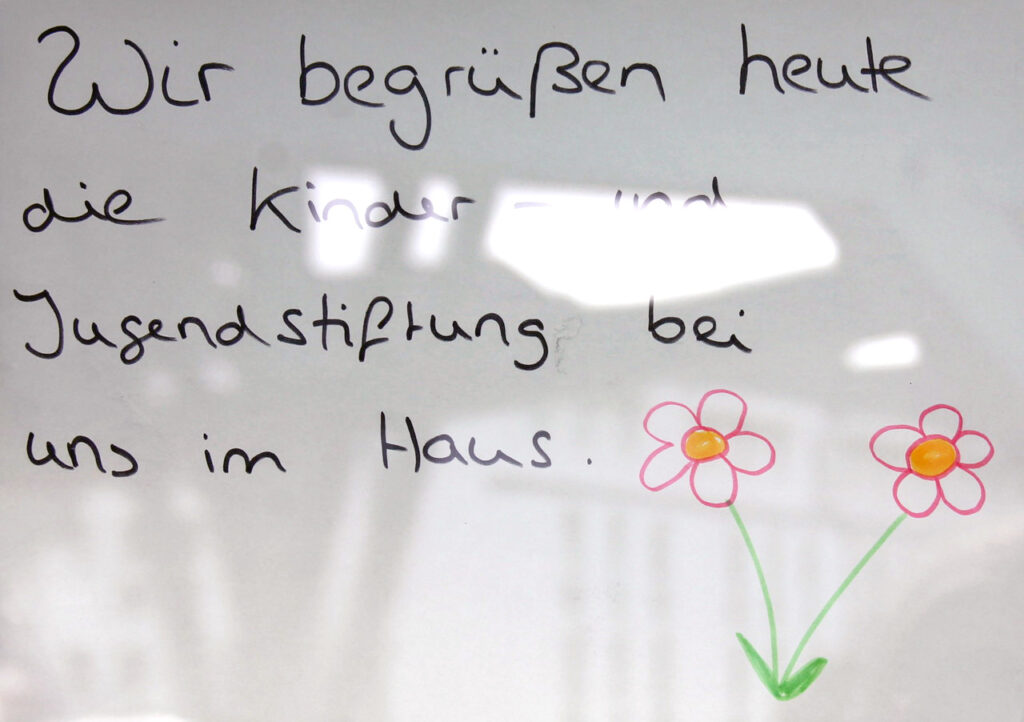 Wir begrüßen heute
die Kinder - und
Jugendstiftung bei
uns im Haus.